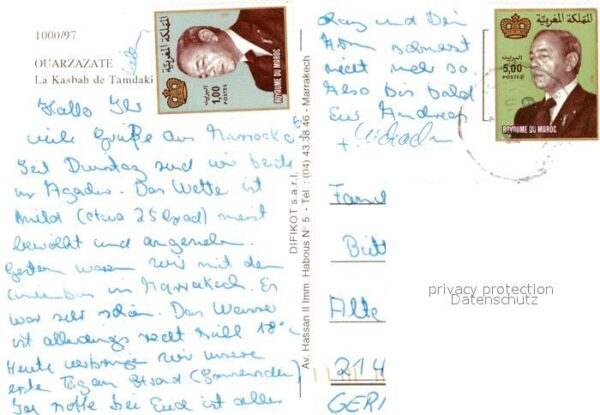 1000/97
OUARZAZATE
La Kasbah de Tamdaki
Hallo Ihr
viele Grüße aus Marrocko
Seit Dienstag sind wir beide
in Agadir. Das Wetter ist
mild (etwa 25 Grad) meist
bewölkt und angenehm.
Gestern waren wir mit dem
in Marrakech. Es
war sehr schön. Das Wasser
ist allerdings recht kühl 18°
Heute verbringen wir unseren
ersten Tag am Strand (Sonnenschein)
Ich hoffe bei Euch ist alles
المملكة المغربية
البريد
1,00
POSTES
ROYAUME DU MAROC
DIFIKOT s.a.r.l.
Av. Hassan II Imm. Habous N° 5 - Tél.: (04) 43.38.46 - Marrakech
und Dein
Arm schmerzt
nicht mehr so.
Also bis bald
Eur Andreas
+
المملكة المغربية
البريد
5,00
POSTES
ROYAUME DU MAROC
Famil
Bütt
Alte
214
GER
privacy protection
Datenschutz